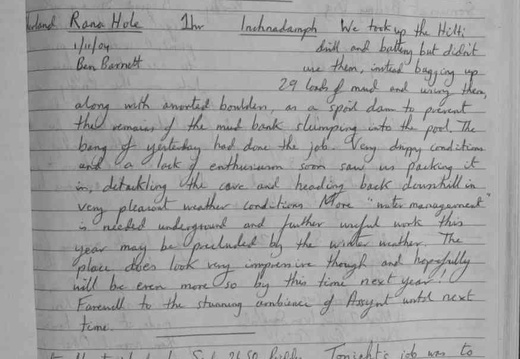 erland Rana Hole 1hr Inchnadamph We took up the Hilti
1/11/04 drill and battery but didn't
Ben Barnett use them, instead bagging up
29 loads of mud and using them,
along with assorted boulders, as a spoil dam to prevent
the remains of the mud bank slumping into the pool. The
bang of yesterday had done the job. Very drippy conditions
and a lack of enthusiasm soon saw us packing it
in, detackling the cave and heading back downhill in
very pleasant weather conditions. More "water management"
is needed underground and further useful work this
year may be precluded by the winter weather. The
place does look very impressive though and hopefully
will be even more so by this time next year!
Farewell to the stunning ambience of Assynt until next
time.
Tonight's job was to